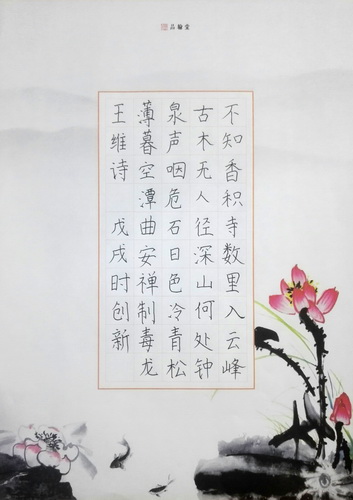 品翰堂
不知香积寺数里入云峰
古木无人径深山何处钟
泉声咽危石日色冷青松
薄暮空潭曲安禅制毒龙
王维诗 戊戌时创新